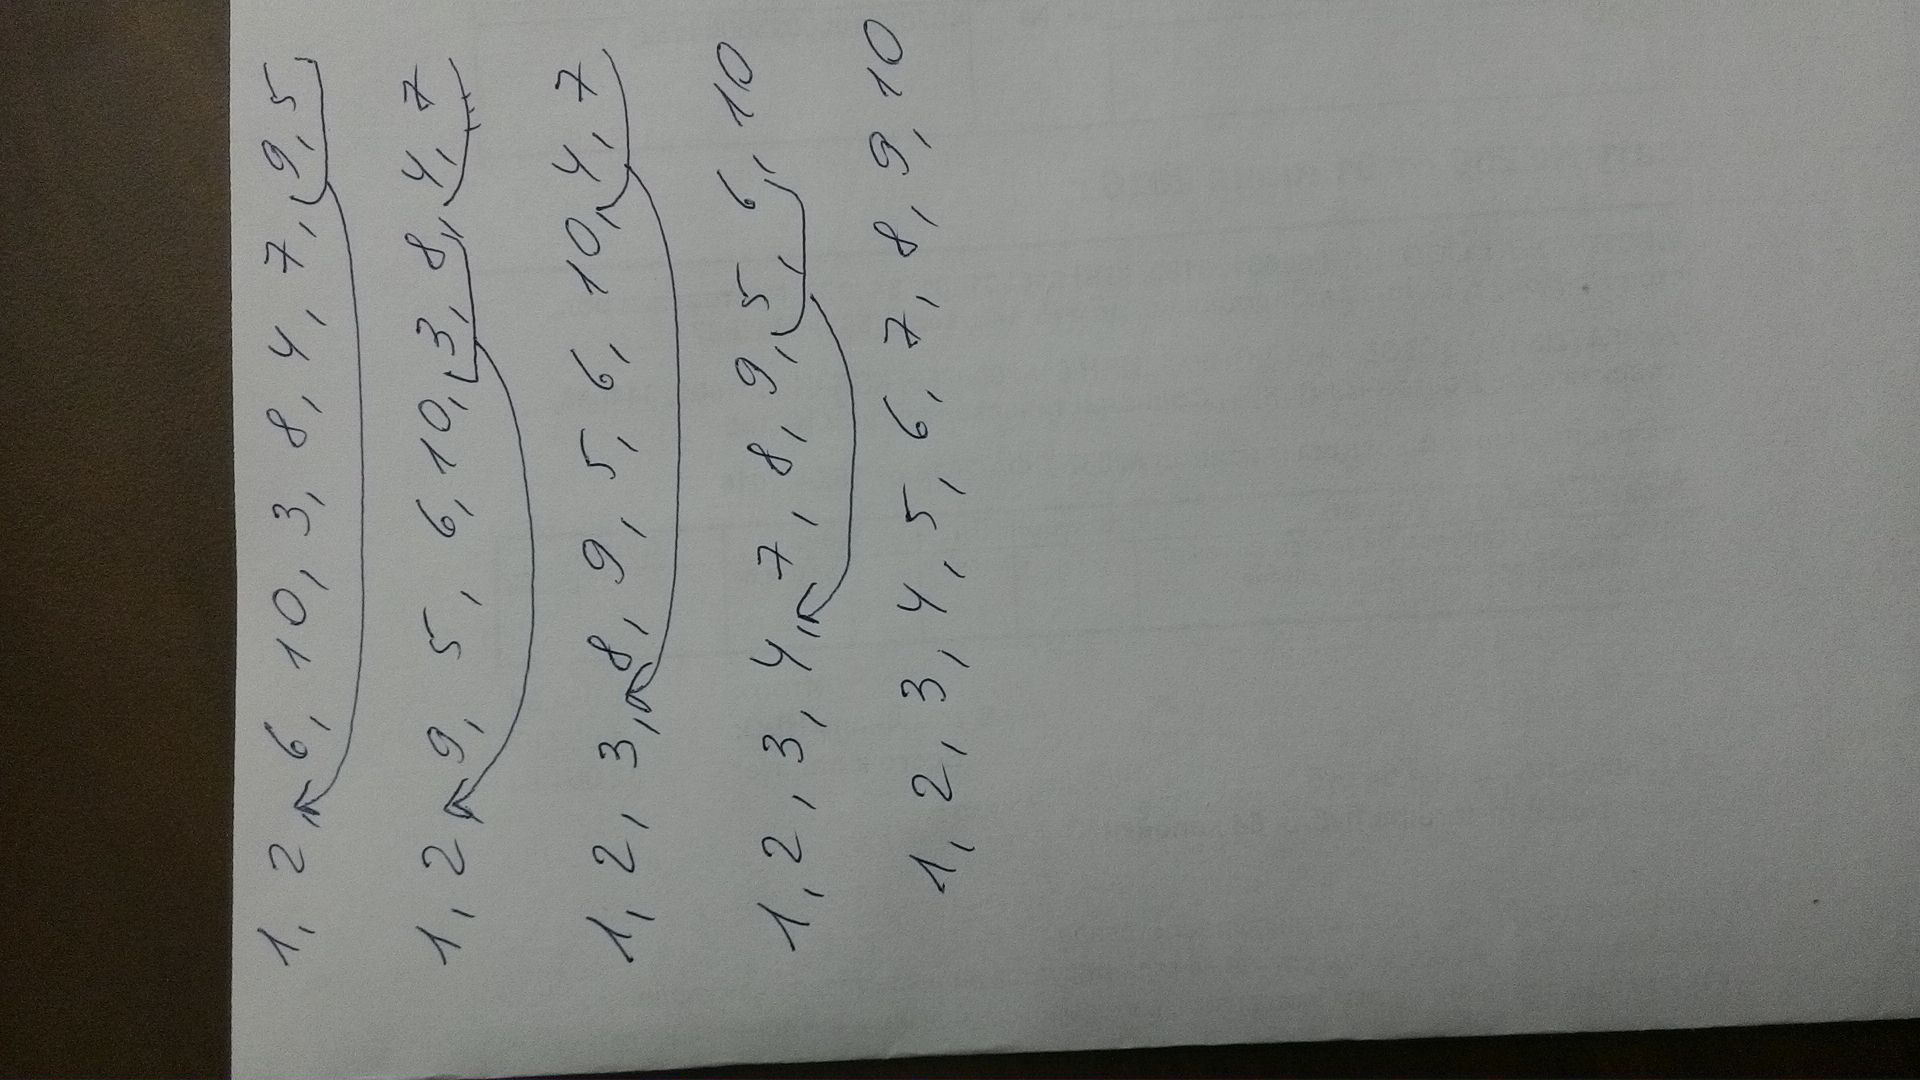 1, 2, 6, 10, 3, 8, 4, 7, 9, 5
1, 2, 9, 5, 6, 10, 3, 8, 4, 7
1, 2, 3, 8, 9, 5, 6, 10, 4, 7
1, 2, 3, 4, 7, 8, 9, 5, 6, 10
1, 2, 3, 4, 5, 6, 7, 8, 9, 10